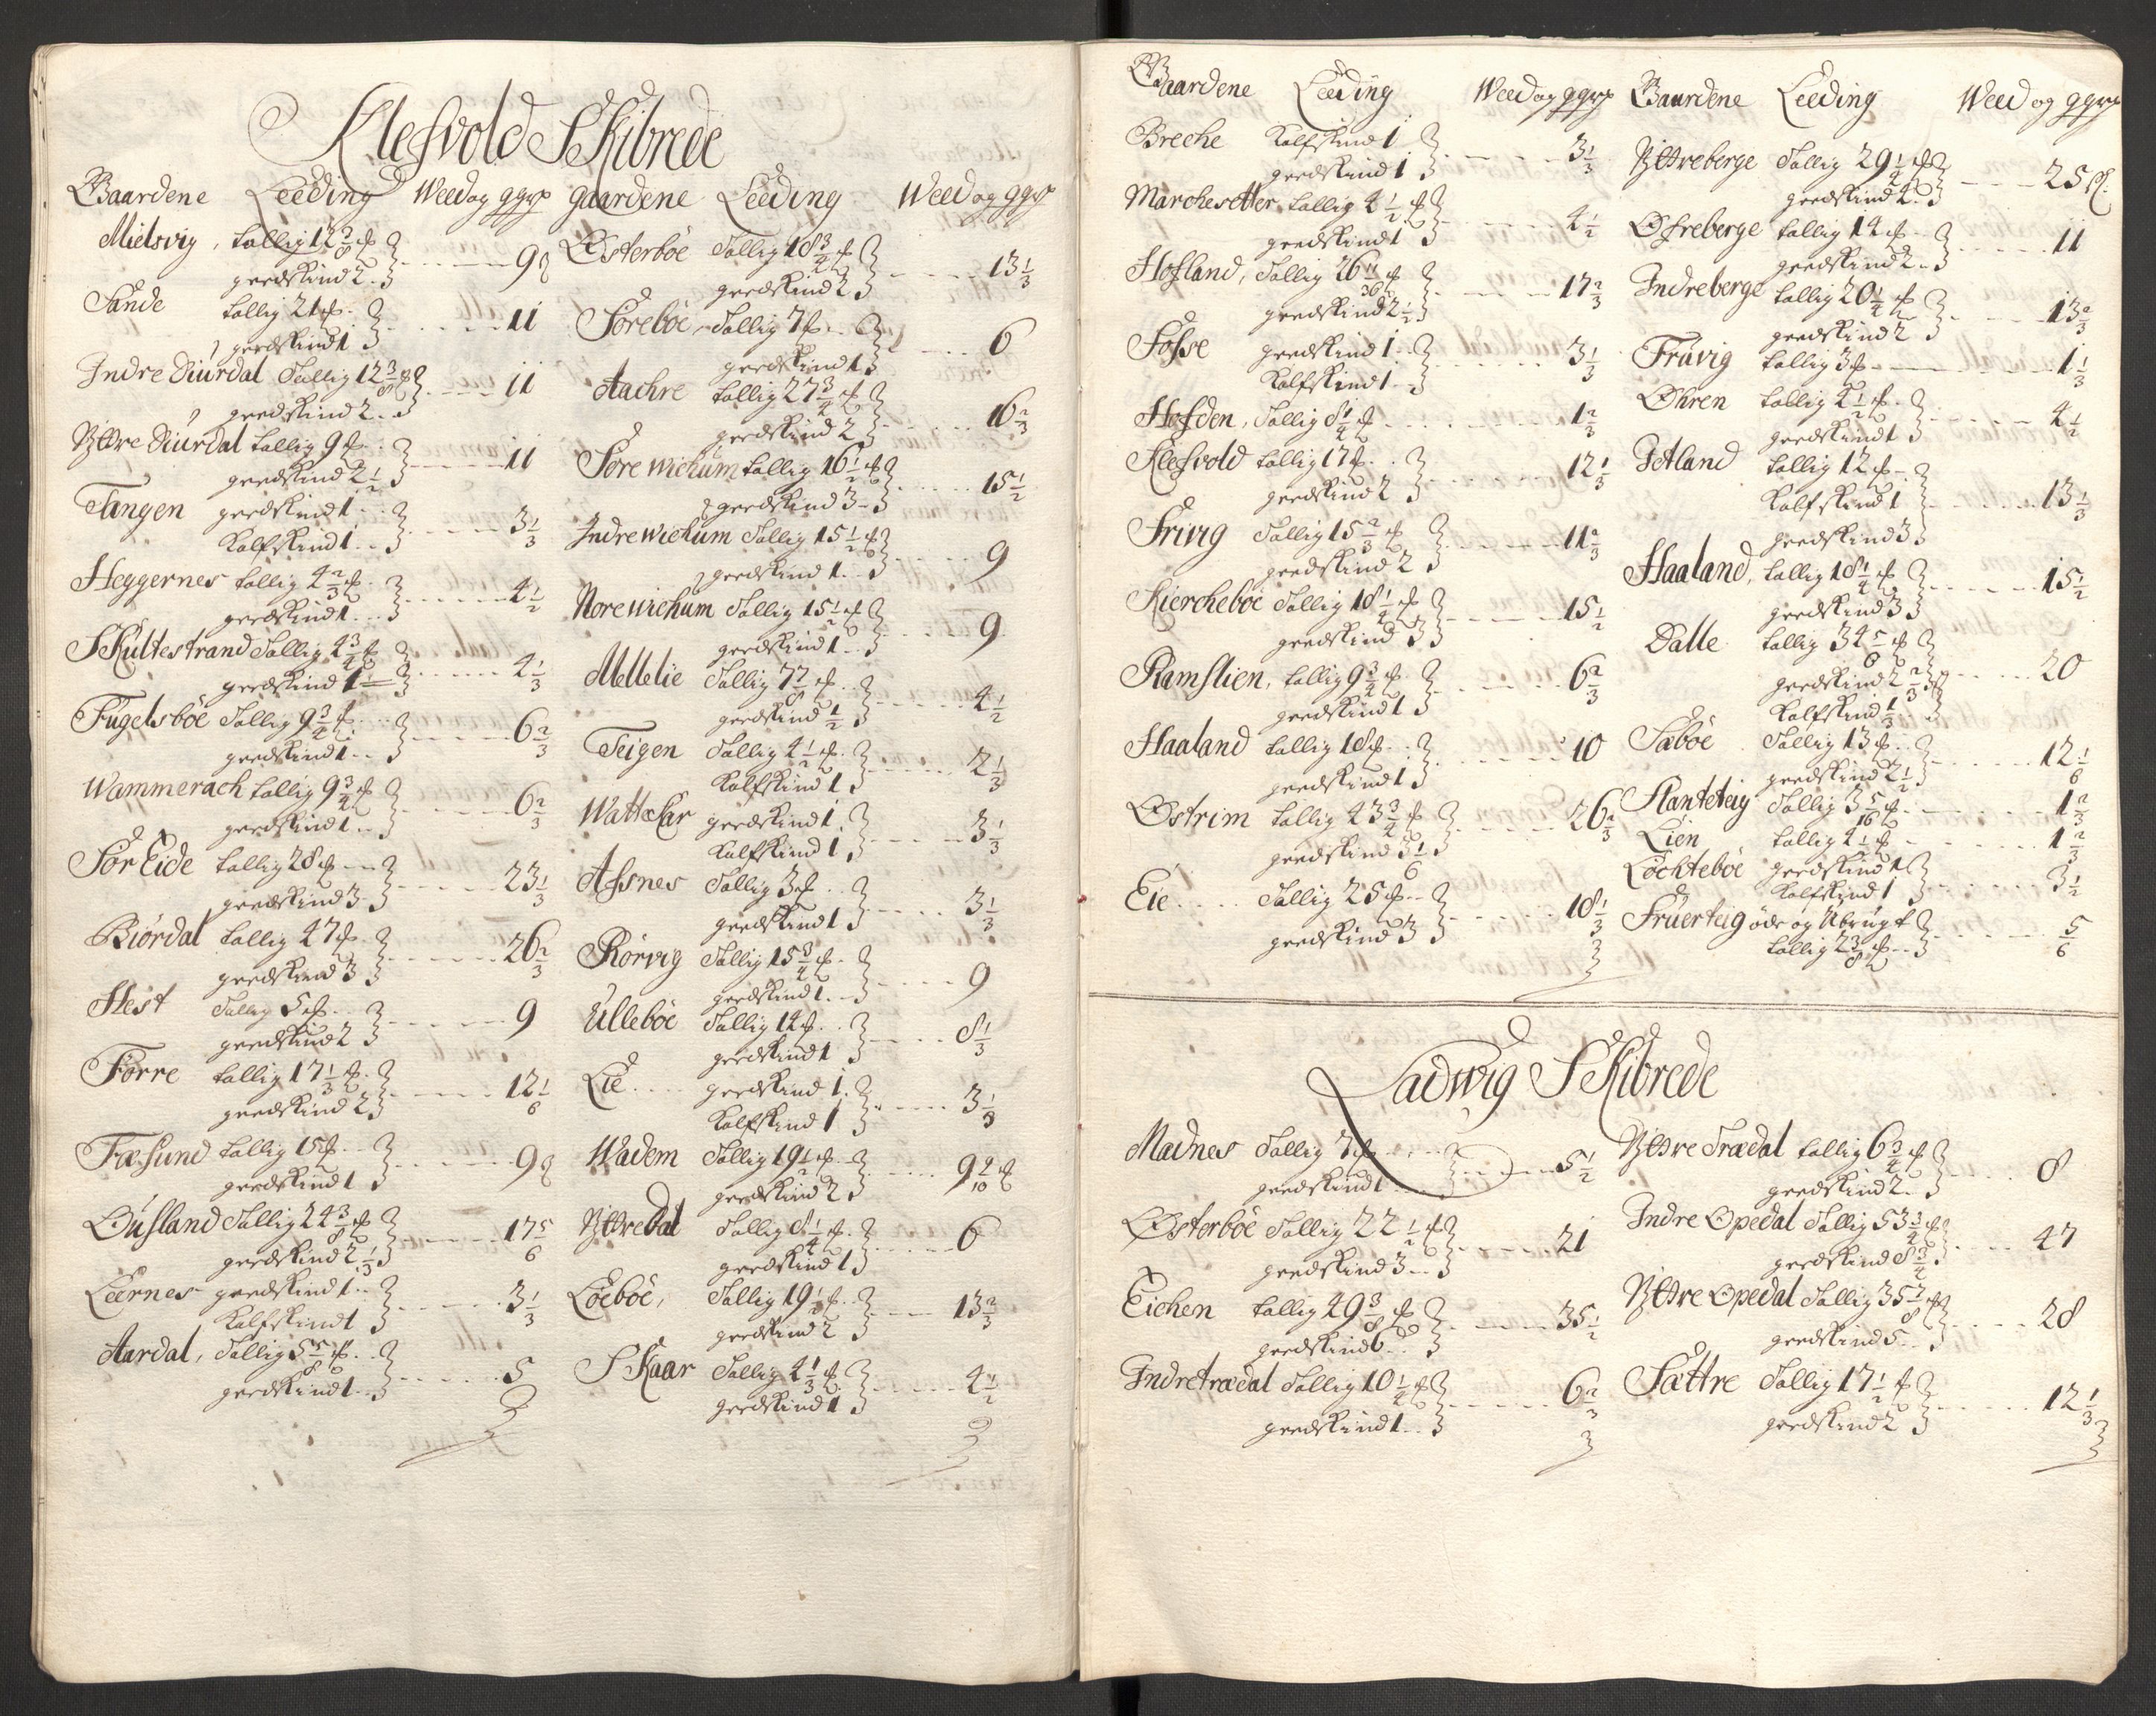 Klefsvold Skibrede
Gaardene Leeding Weed og ggrp
Mielsvig, tallig 12 3/8 ℔
geedskind 2 9
Sande tallig 21 ℔
geedskind 1 11
Indre Diurdal Tallig 12 3/8 ℔
geedskind 2 11
Yttre Diurdal tallig 9 ℔
geedskind 2 1/2 11
Tangen geedskind 1
Kalfskind 1 3 1/3
Heggernes tallig 4 2/3 ℔
geedskind 1 4 1/2
Skultestrand Tallig 4 3/4 ℔
geedskind 1 4 1/3
Fugelsböe Tallig 9 3/4 ℔
geedskind 1 6 2/3
Wammerach tallig 9 3/4 ℔
geedskind 1 6 2/3
Sör Eide tallig 28 ℔
geedskind 3 23 1/3
Biördal tallig 47 ℔
geedskind 3 26 2/3
Hest Tallig 5 ℔
geedskind 2 9
Förre tallig 17 1/3 ℔
geedskind 2 12 1/6
Fæsund tallig 15 ℔
geedskind 1 9
Ousland Tallig 24 3/8 ℔
geedskind 2 1/3 17 5/6
Leernes geedskind 1
Kalfskind 1 3 1/3
Aardal, Tallig 5 5/8 ℔
geedskind 1 5
gaardene Leeding Weed og ggrp
Österböe Tallig 18 3/4 ℔
geedskind 2 13 1/3
Söreböe, Tallig 7 ℔
geedskind 1 6
Aachre tallig 27 3/4 ℔
geedskind 2 16 2/3
Söre wichum tallig 16 1/2 ℔
geedskind 3 15 1/2
Indre wichum Tallig 15 1/2 ℔
geedskind 1 9
Nore wichum Tallig 15 1/2 ℔
geedskind 1 9
Mellelie Tallig 7 7/8 ℔
geedskind 1/2 4 1/2
Teigen Tallig 4 1/2 ℔
Kalfskind 1 2 1/3
Wattekar geedskind 1
Kalfskind 1 3 1/3
Assnes Tallig 3 ℔
geedskind 1 3 1/3
Rörvig Tallig 15 3/4 ℔
geedskind 1 9
Ulleböe Tallig 14 ℔
geedskind 1 8 1/3
Lie geedskind 1
Kalfskind 1 3 1/3
Wadem Tallig 19 1/2 ℔
geedskind 2 9 9/10 ℔
Yttre Dal Tallig 8 1/4 ℔
geedskind 1 6
Löeböe, Tallig 19 1/2 ℔
geedskind 2 13 2/3
Skaar Tallig 4 1/3 ℔
geedskind 1 4 1/2
Gaardene Leeding Weed og ggrp
Breche Kalfskind 1
geedskind 1 3 1/3
Marchesetter tallig 4 1/2 ℔
geedskind 1 4 1/2
Hofland, Tallig 26 11/36 ℔
geedskind 2 1/2 17 2/3
Fosse geedskind 1
Kalfskind 1 3 1/3
Hofden, Tallig 8 1/4 ℔ 1 2/3
Klefsvold tallig 17 ℔
geedskind 2 12 1/3
Frivig Tallig 15 2/3 ℔
geedskind 2 11 2/3
Kiercheböe Tallig 18 1/4 ℔
geedskind 3 15 1/2
Ramslien, tallig 9 3/4 ℔
geedskind 1 6 2/3
Haaland tallig 18 ℔
geedskind 1 10
Östrim tallig 43 3/4 ℔
geedskind 3 1/6 26 2/3
Eie Tallig 25 ℔
geedskind 3 18 1/3
Gaardene Leeding Weed og ggrp
Yttreberge Tallig 29 1/4 ℔
geedskind 4 25 ℔
Öfreberge tallig 14 ℔
geedskind 2 11
Indreberge tallig 20 1/4 ℔
geedskind 2 13 2/3
Fruvig tallig 3 ℔ 1 1/3
Öhren tallig 4 1/2 ℔
geedskind 1 4 1/2
Jetland tallig 12 ℔
Kalfskind 1
geedskind 3 13 1/3
Haaland, tallig 18 1/4 ℔
geedskind 3 15 1/2
Dalle tallig 34 5/6 ℔
geedskind 2 2/3
Kalfskind 1/3 20
Sæböe Tallig 13 ℔
geedskind 2 1/2 12 1/6
Slanteteig Tallig 3 5/16 ℔ 1 2/3
Lien tallig 4 1/2 ℔ 1 2/3
Löchteböe geedskind 1
Kalfskind 1 3 1/2
Fruerteig öde og Ubrügt
tallig 2 3/8 ℔ 5/6
Ladwig Skibrede
Madnes Tallig 7 ℔
geedskind 1 5 1/2
Österböe Tallig 22 1/2 ℔
geedskind 3 21
Eichen tallig 49 3/8 ℔
geedskind 6 35 1/2
Indretrædal Tallig 10 1/4 ℔
geedskind 1 6 2/3
Yttre Trædal tallig 6 3/4 ℔
geedskind 2 8
Indre Opedal Tallig 53 3/4 ℔
geedskind 8 3/4 47
Yttre Opedal Tallig 35 7/8 ℔
geedskind 5 28
Sættre Tallig 17 1/2 ℔
geedskind 2 12 1/3